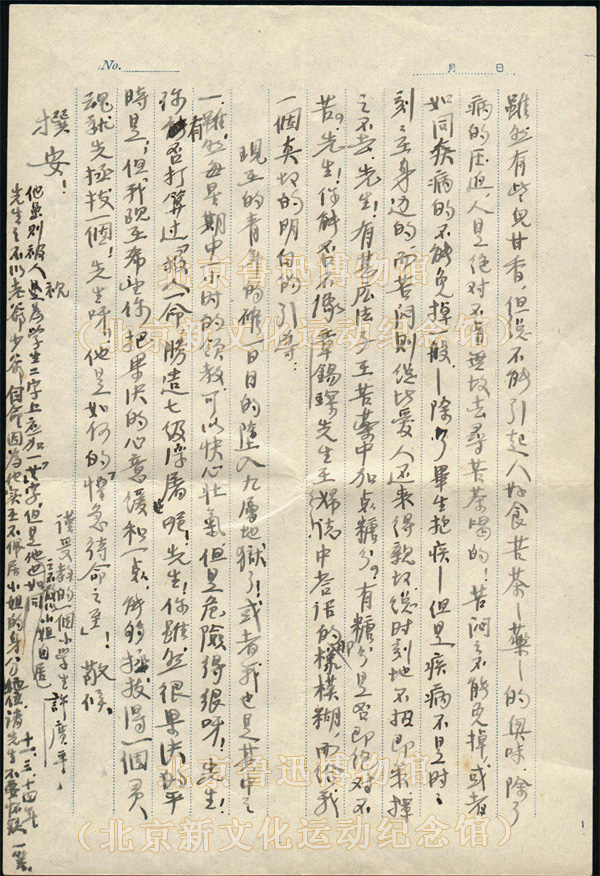 No.
月 日
雖然有些兒甘香,但總不能引起人好食苦茶—藥—的興味,除了
病的压迫,人是絕對不肯無故去尋苦茶喝的!苦闷之不能免掉,或者
如同疾病的不能免掉一般—除了畢生抱疾—但是疾病不是時之
刻之在身边的,而苦闷則總比爱人还來得親切總时刻地不招即來揮
之不去。先生!有甚么法子在苦藥中加点糖分?有糖分是否即绝对不
苦?先生!你能否不像章錫琛先生在婦誌中答话的那樣模糊,而给我
一個真切的明白的引導?
現在的青年的確一日日的墮入九層地獄了!或者我也是其中之
一。雖然每星期中一小时的領教,可以快心壯氣,但是危險得很呀!先生!
你有否打算过「救人一命勝造七級浮屠」呢?先生!你雖然很果決的平
時是;但我現在希望你把果決的心意缓和一点,能夠拯拔得一個灵
魂就先拯拔一個!先生呀!他是如何的「惶急待命之至」!敬候
撰安!
謹受教的一個小學生 許廣平。
十一,三,十四年
他虽則被人視為學生二字上应加一「女」字,但是他之不敢以小姐自居也如同
先生之不以老爺少爺自命,因為他实在不佩居小姐的身分地位,請先生不要怀疑,一笑。
北京鲁迅博物馆
(北京新文化运动纪念馆)
北京鲁迅博物馆
(北京新文化运动纪念馆)